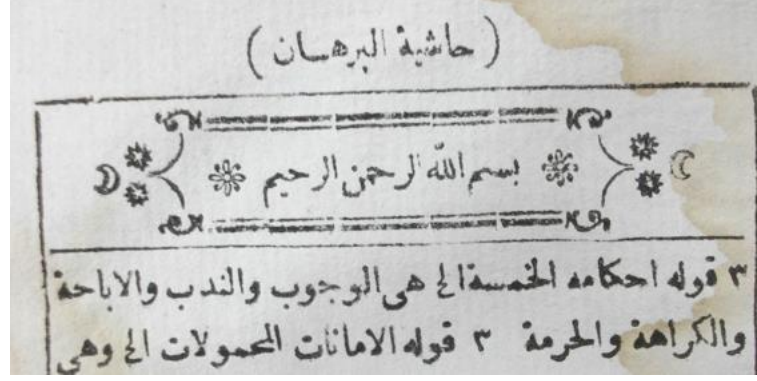 ( حاشية البرهان )
بسم الله الرحمن الرحيم
٣ قوله احكامه الخمسة الخ هى الوجوب والندب والاباحة
والكراهة والحرمة ٣ قوله الامانات المحمولات الخ وهى